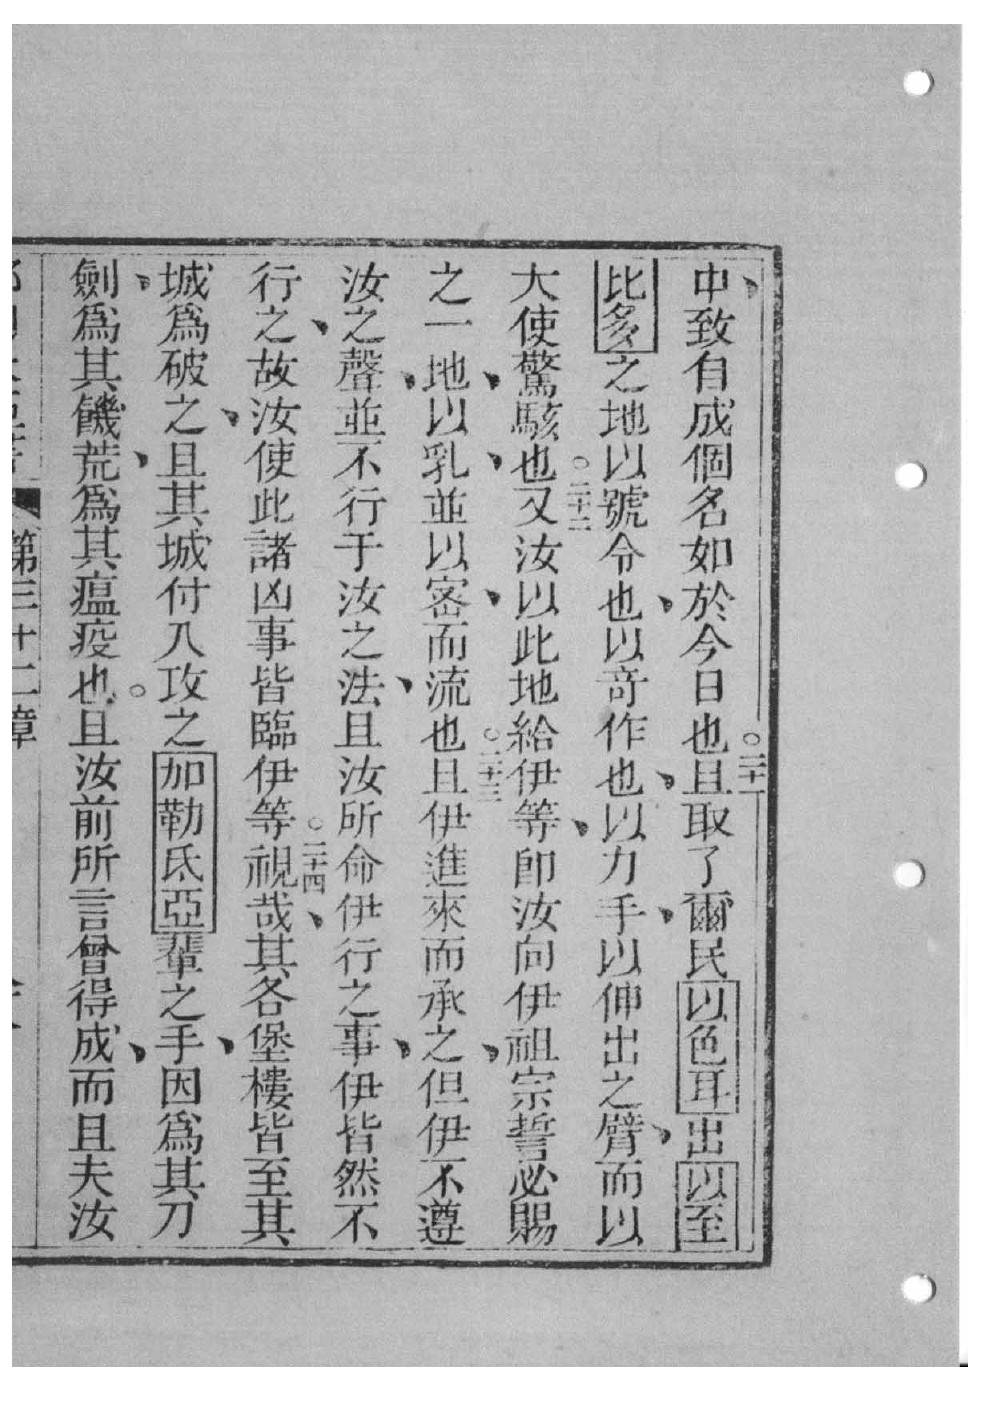 中致自成個名如於今日也○二十一且取了爾民以色耳出以至
比多之地以號令也以奇作也以力手以伸出之臂而以
大使驚駭也○二十二又汝以此地給伊等卽汝向伊祖宗誓必賜
之一地以乳並以蜜而流也○二十三且伊進來而承之但伊不遵
汝之聲並不行于汝之法且汝所命伊行之事伊皆然不
行之故汝使此諸凶事皆臨伊等○二十四視哉其各堡樓皆至其
城爲破之且其城付入攻之加勒氐亞輩之手因爲其刀
劍爲其饑荒爲其瘟疫也○且汝前所言曾得成而且夫汝
第三十二章